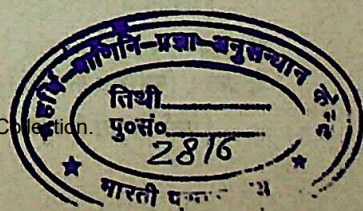 महर्षि-पाणिनि-प्रज्ञा-अनुसन्धान
तिथी
पु०सं०
2816
Collection.
भारती